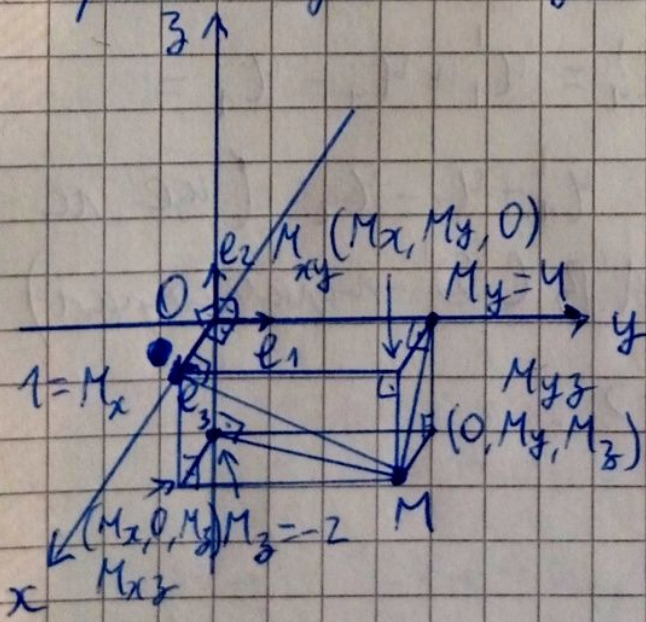 z
e₂ M_xy (M_x, M_y, 0)
O M_y = 4
e₁ y
1 = M_x M_yz
e₃ (0, M_y, M_z)
M
(M_x, 0, M_z) M_z = -2
M_xz
x